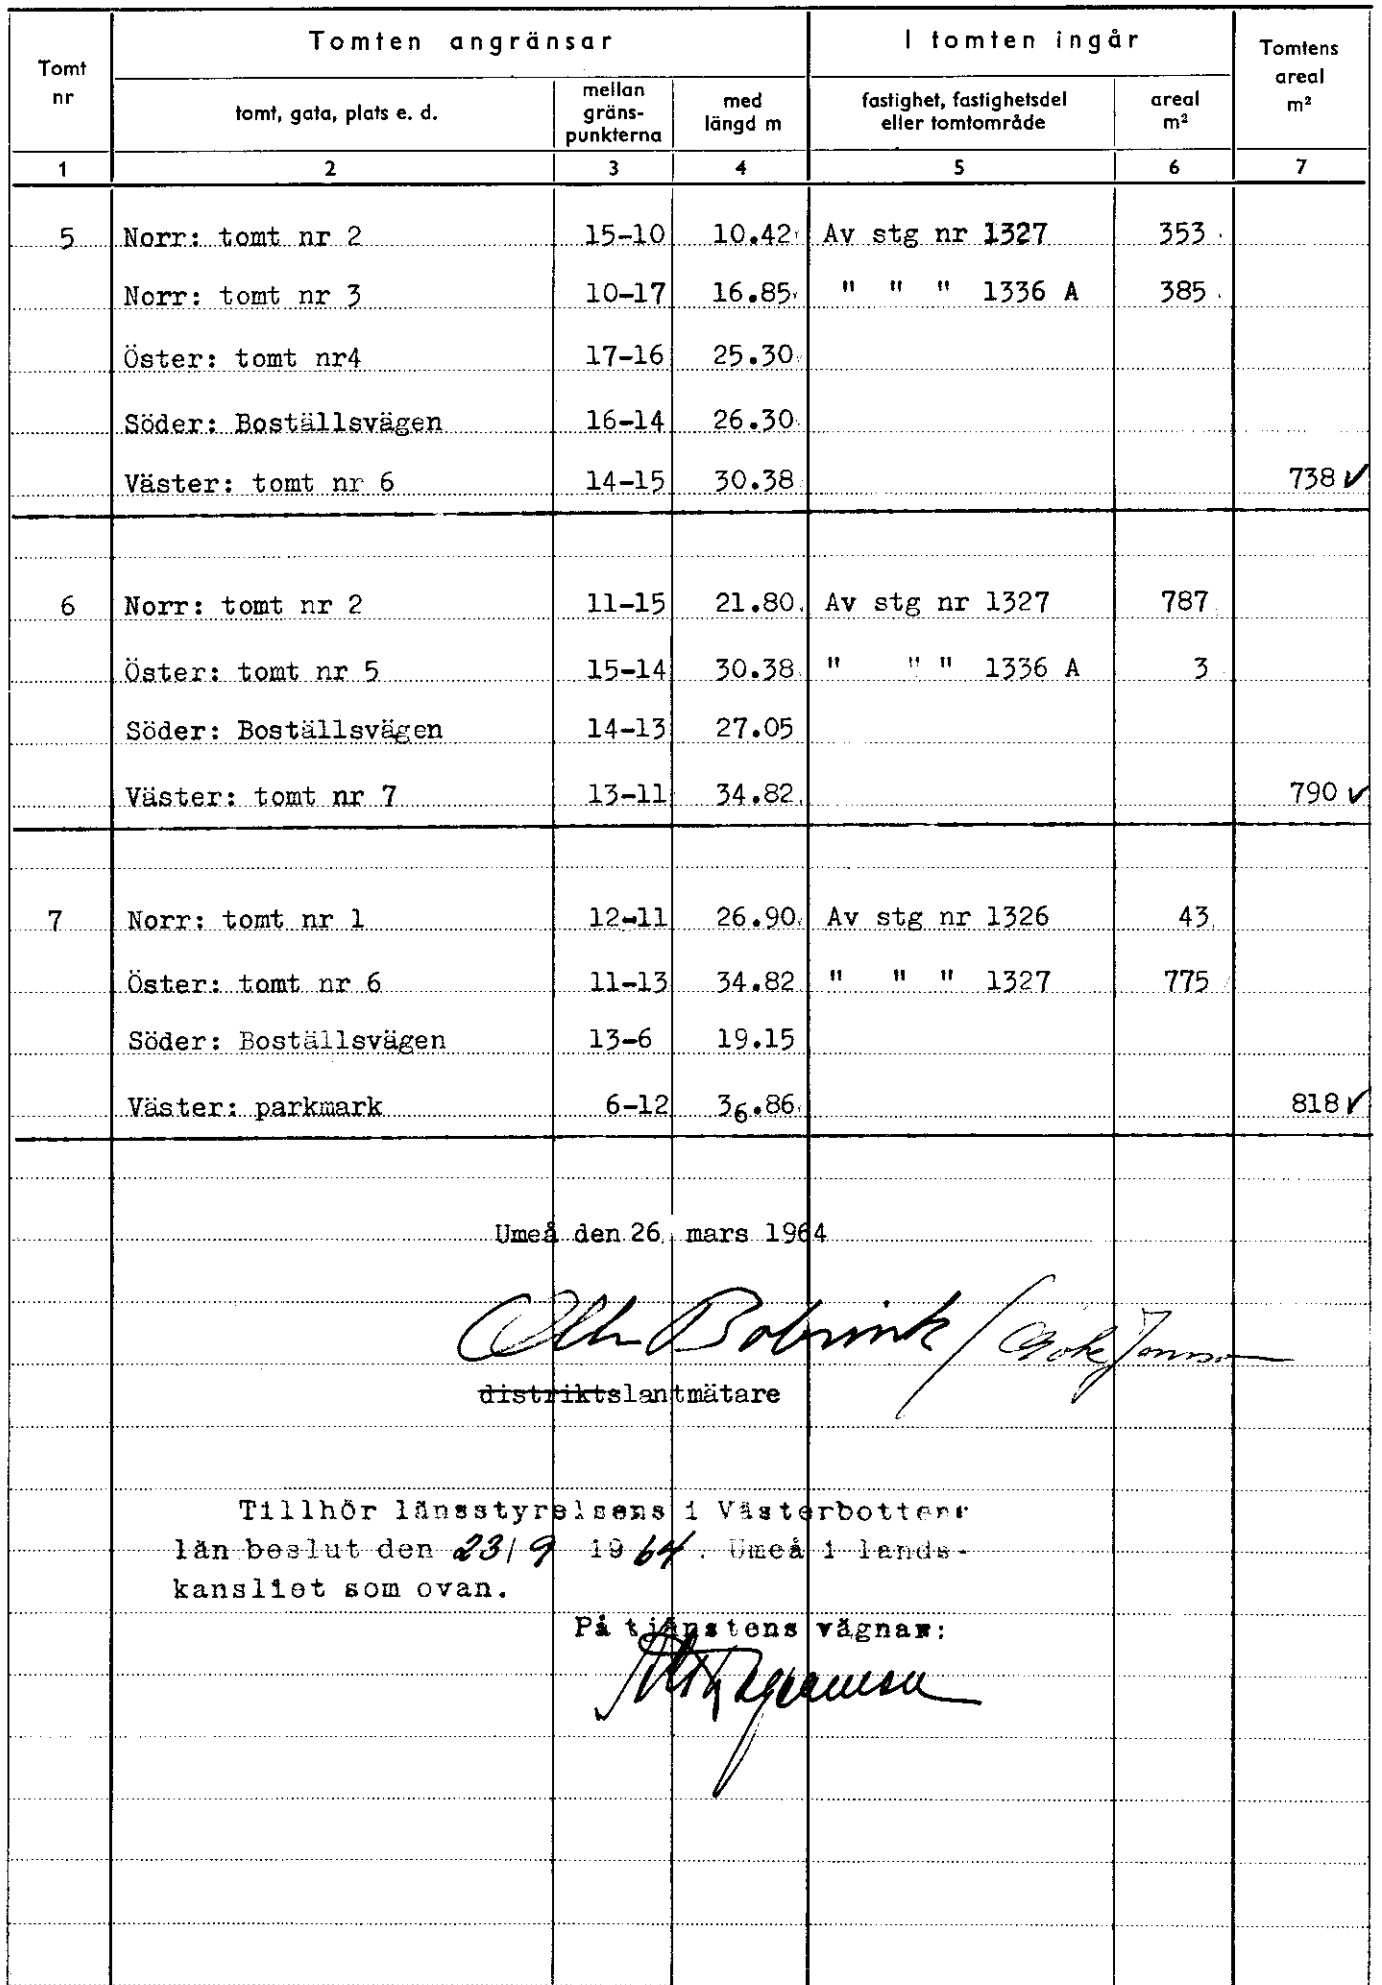 Tomt nr
Tomten angränsar
I tomten ingår
Tomtens areal m²
tomt, gata, plats e. d.
mellan gräns-punkterna
med längd m
fastighet, fastighetsdel eller tomtområde
areal m²
1 2 3 4 5 6 7
5 Norr: tomt nr 2 15-10 10.42 Av stg nr 1327 353
Norr: tomt nr 3 10-17 16.85 " " " 1336 A 385
Öster: tomt nr4 17-16 25.30
Söder: Boställsvägen 16-14 26.30
Väster: tomt nr 6 14-15 30.38 738 ✓
6 Norr: tomt nr 2 11-15 21.80 Av stg nr 1327 787
Öster: tomt nr 5 15-14 30.38 " " " 1336 A 3
Söder: Boställsvägen 14-13 27.05
Väster: tomt nr 7 13-11 34.82 790 ✓
7 Norr: tomt nr 1 12-11 26.90 Av stg nr 1326 43
Öster: tomt nr 6 11-13 34.82 " " " 1327 775
Söder: Boställsvägen 13-6 19.15
Väster: parkmark 6-12 36.86 818 ✓
Umeå den 26 mars 1964
Bobrink /
distriktslantmätare
Tillhör länsstyrelsens i Västerbottens
län beslut den 23/9 1964. Umeå i lands-
kansliet som ovan.
På tjänstens vägnar: